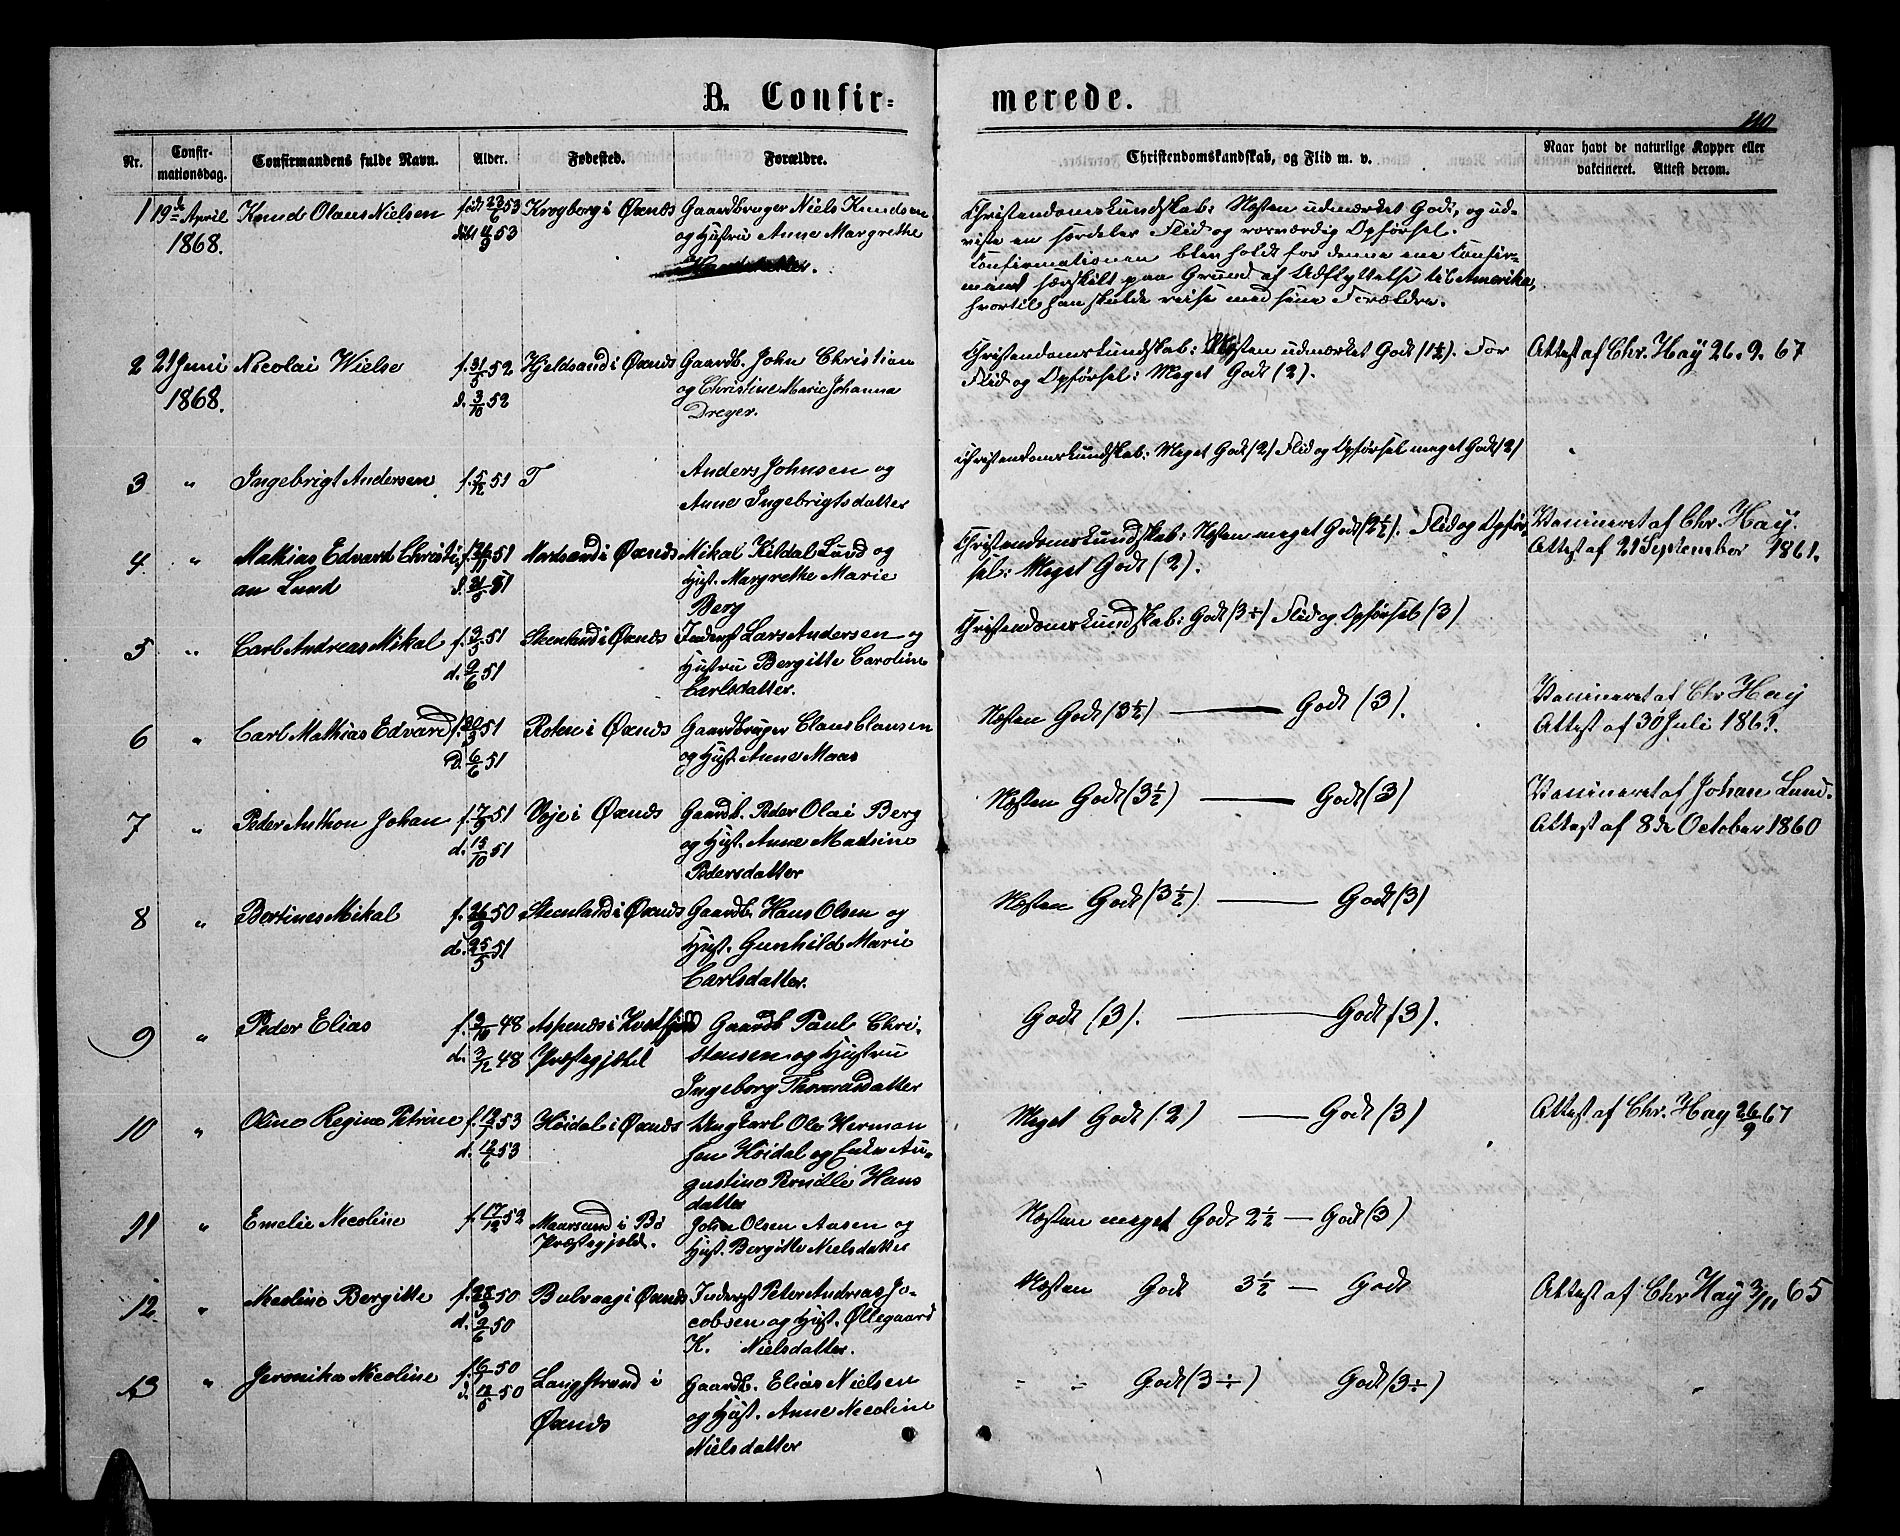 B. Confir-
merede.
140
Nr.
Confir-
mationsdag.
Confirmandens fulde Navn.
Alder.
Fødested.
Forældre.
Christendomskundskab, og Flid m. v.
Naar havt de naturlige Kopper eller
vakcineret. Attest derom.
1 19de April Knud Olaus Nielsen Krogborg i Øxnæs Gaardbruger Niels Knudsen
1868. og Hustru Anne Margrethe
Christendomskundskab: Næsten udmærket Godt, og ud-
viste en særdeles Flid og rosværdig Opførsel.
Confirmationen blev holdt for denne ene Confir-
mant særskilt paa Grund af Udflyttelse til Amerika,
hvortil han skulde reise med sine Forældre.
2 21 Juni Nicolai Wielse f. 31/5 52 Hjeldsand i Øxnæs Gaardb. John Christian
1868. d. 3/10 52 og Christine Marie Johanna
Dreyer.
Christendomskundskab: Næsten udmærket Godt (1½). For
Flid og Opførsel: Meget Godt (2).
Attest af Chr. Hay 26. 9. 67
3 " Ingebrigt Andersen f. 5/12 51 T Anders Johnsen og
Anne Ingebrigtsdatter
Christendomskundskab: Meget Godt (2) Flid og Opførsel meget Godt (2)
4 " Mathias Edvard Christi- Øxnæs Mikal Kildal Lund og
an Lund Hust. Margrethe Marie
Berg
Christendomskundskab: Næsten meget Godt (2½). Flid og Opfør-
sel: Meget Godt (2).
Vaccineret af Chr. Hay.
Attest af 21 September 1861.
5 " Carl Andreas Mikal Steenland i Øxnæs Inderst Lars Andersen og
d. 9/6 51 Hustru Bergitte Caroline
Carlsdatter.
Christendomskundskab: Godt (3÷) Flid og Opførsel (3)
6 " Carl Mathias Edvard Roten i Øxnæs Gaardbruger Claus Clausen
D. 6/6 51 og Hust. Anne Maas
Næsten Godt (3½) — Godt (3).
Vaccineret af Chr Hay
Attest af 30 Juli 1861.
7 " Peder Anthon Johan f. 7/9 51 Vøje i Øxnæs Gaardb. Peder Olai Berg
d. 13/10 51 og Hust. Anne Madsine
Pedersdatter
Næsten Godt (3½) — Godt (3)
Vaccineret af Johan Lund.
Attest af 8de October 1860
8 " Bertines Mikal f. 26/9 50 Steenland i Øxnæs Gaardb. Hans Olsen og
d. 25/5 51 Hust. Gunhild Marie
Carlsdatter.
Næsten Godt (3½) — Godt (3)
9 " Peder Elias f. 9/10 48 Aspenæs i Kvæfjord Gaardb Paul Chri-
d. 3/12 48 Præstegjeld stensen og Hustru
Ingeborg Thomasdatter
Godt (3). — Godt (3).
10 " Oline Regine Petrine Høidal i Øxnæs Ungkarl Ole Herman
d. 12/6 53 sen Høidal og Enke Au-
gustine Pernille Hans
datter
Meget Godt (2) — Godt (3)
Attest af Chr. Hay 26/9 67
11 " Emelie Nicoline f. 17/12 52 Maarsund i Bø John Olsen Aasen og
Præstegjeld. Hust. Bergitte Nielsdatter
Næsten meget Godt 2½ — Godt (3)
12 " Bergitte Øxnæs Inderst Peter Andreas Ja-
d. 2/6 50 cobsen og Hust. Øllegaard
K. Nielsdatter.
Næsten Godt 3½ — Godt
Attest af Chr Hay 3/11 65
13 " Jeronika Nicoline Langstrand i Gaardb. Elias Nielsen
Øxnæs og Hust. Anne Nicoline
Nielsdatter
Godt (3÷) Godt (3÷)